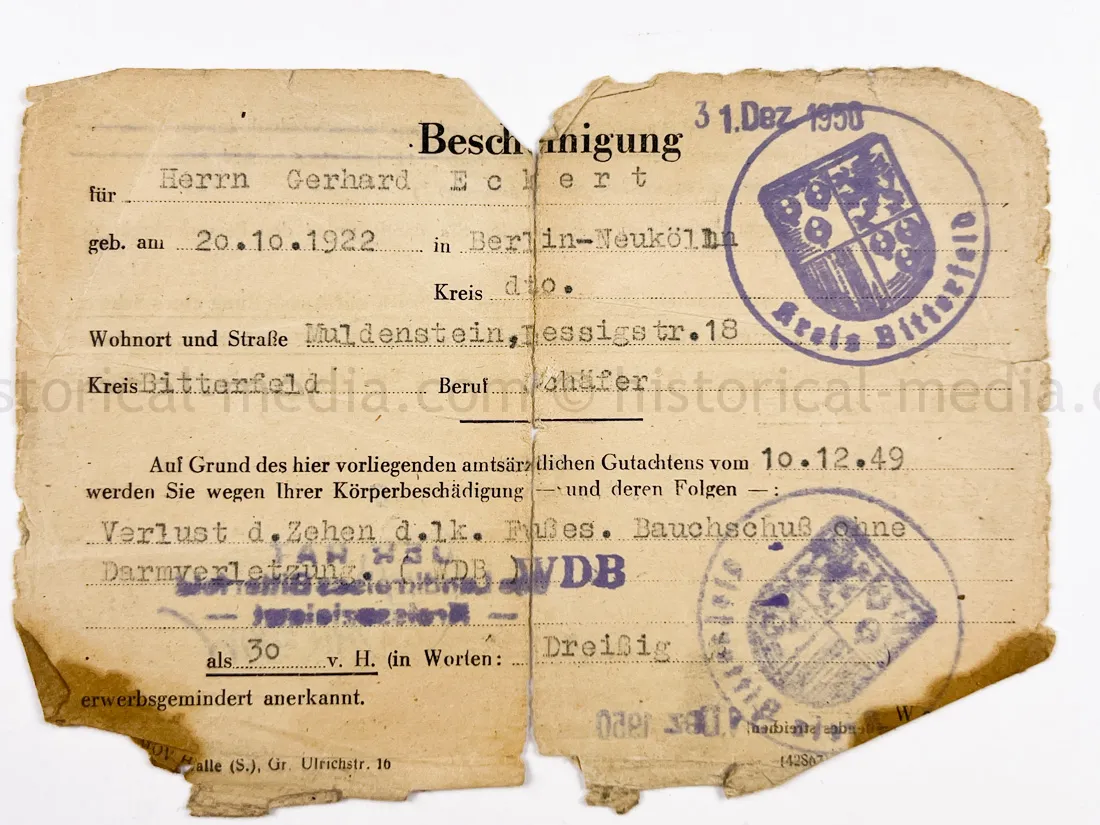 31.Dez 1950
Bescheinigung
für Herrn Gerhard Eckert
geb. am 20.10.1922 in Berlin-Neukölln
Kreis dto.
Wohnort und Straße Muldenstein, Lessigstr.18
Kreis Bitterfeld Beruf Schäfer
Kreis Bitterfeld
historical-media.com © historical-media.com
Auf Grund des hier vorliegenden amtsärztlichen Gutachtens vom 10.12.49
werden Sie wegen Ihrer Körperbeschädigung — und deren Folgen —:
Verlust d.Zehen d.lk. Fußes. Bauchschuß ohne
Darmverletzung. ( WDB ) WDB
DER RAT
des Landkreises Bitterfeld
— Kreissozialamt —
als 30 v. H. (in Worten: Dreißig )
erwerbsgemindert anerkannt.
Kreis Bitterfeld
Dez 1950
streichen.
Halle (S.), Gr. Ulrichstr. 16